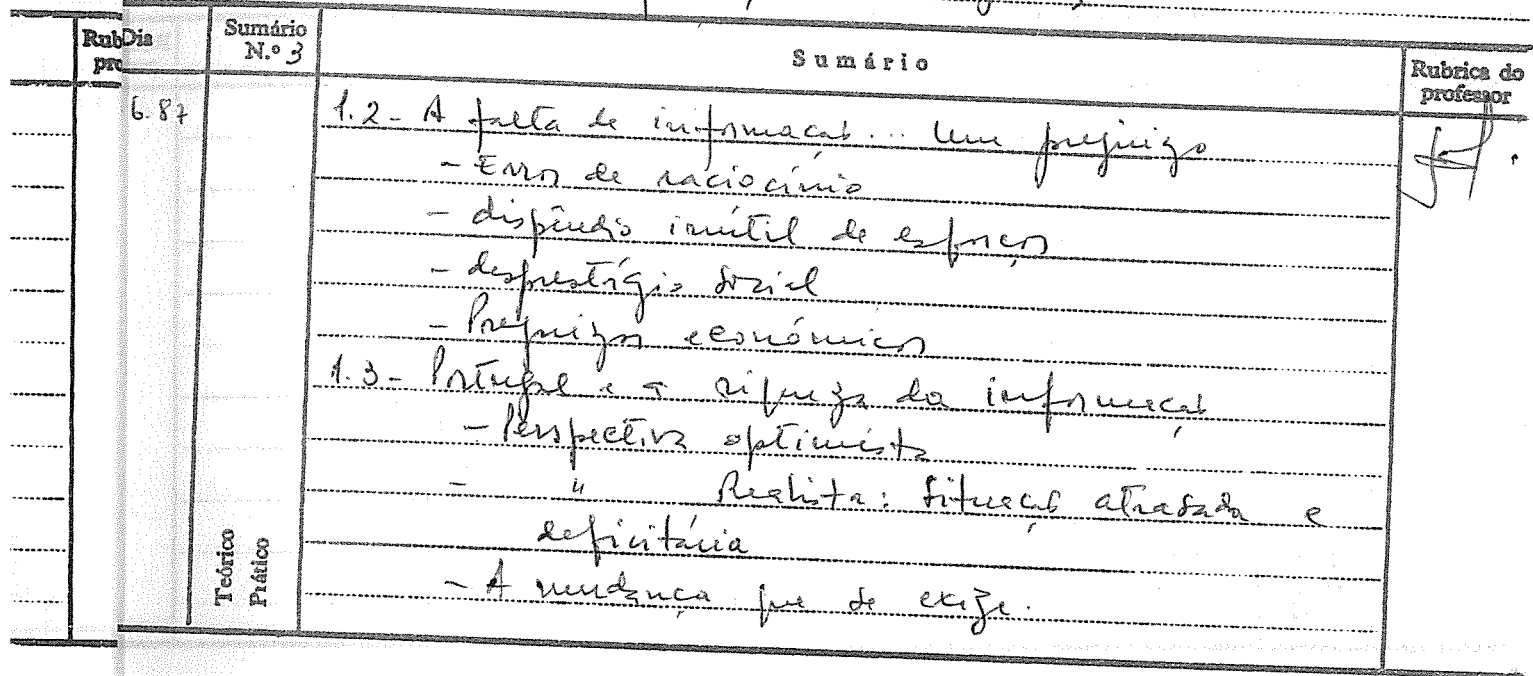 Rub
pro
Dia
Sumário
N.º 3
Sumário
Rubrica do
professor
6.87
1.2 - A falta de informação... um prejuízo
- Erros de raciocínio
- dispêndio inútil de esforços
- desprestígio social
- Prejuízos económicos
1.3 - Portugal e a riqueza da informação
- Perspectiva optimista
- " Realista: Situação atrasada e
deficitária
- A mudança que se exige.
Teórico
Prático